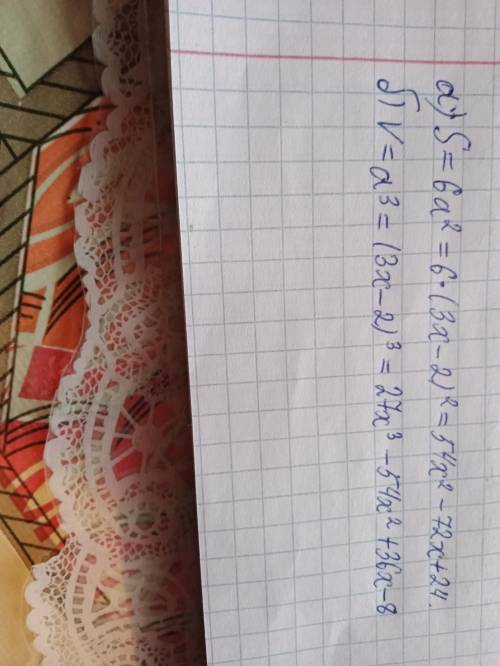 а) S = 6a² = 6·(3x-2)² = 54x² - 72x + 24.
б) V = a³ = (3x-2)³ = 27x³ - 54x² + 36x - 8